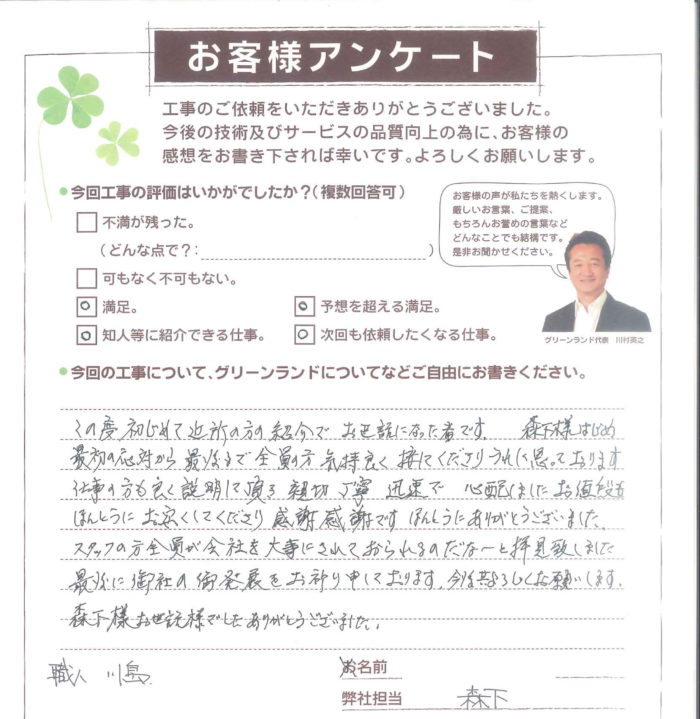 お客様アンケート
工事のご依頼をいただきありがとうございました。
今後の技術及びサービスの品質向上の為に、お客様の
感想をお書き下されば幸いです。よろしくお願いします。
今回工事の評価はいかがでしたか?(複数回答可)
不満が残った。
(どんな点で?: )
可もなく不可もない。
満足。
予想を超える満足。
知人等に紹介できる仕事。
次回も依頼したくなる仕事。
お客様の声が私たちを熱くします。
厳しいお言葉、ご提案、
もちろんお誉めの言葉など
どんなことでも結構です。
是非お聞かせください。
グリーンランド代表 川村英之
今回の工事について、グリーンランドについてなどご自由にお書きください。
この度初じめて近所の方の紹介で お世話になった者です。 森下様はじめ
最初の応対から最後まで全員の方 気持良く接してくださりうれしく思っております
仕事の方も良く説明して頂き 親切 丁寧 迅速で 心配しました お値段も
ほんとうに お安くしてくださり 感謝感謝です ほんとうにありがとうございました。
スタッフの方全員が会社を大事にされておられるのだなーと拝見致しました
最後に御社の御発展をお祈り申しております。今後共よろしくお願いします。
森下様お世話様でした ありがとうございました。
職人 川島
お名前
弊社担当 森下